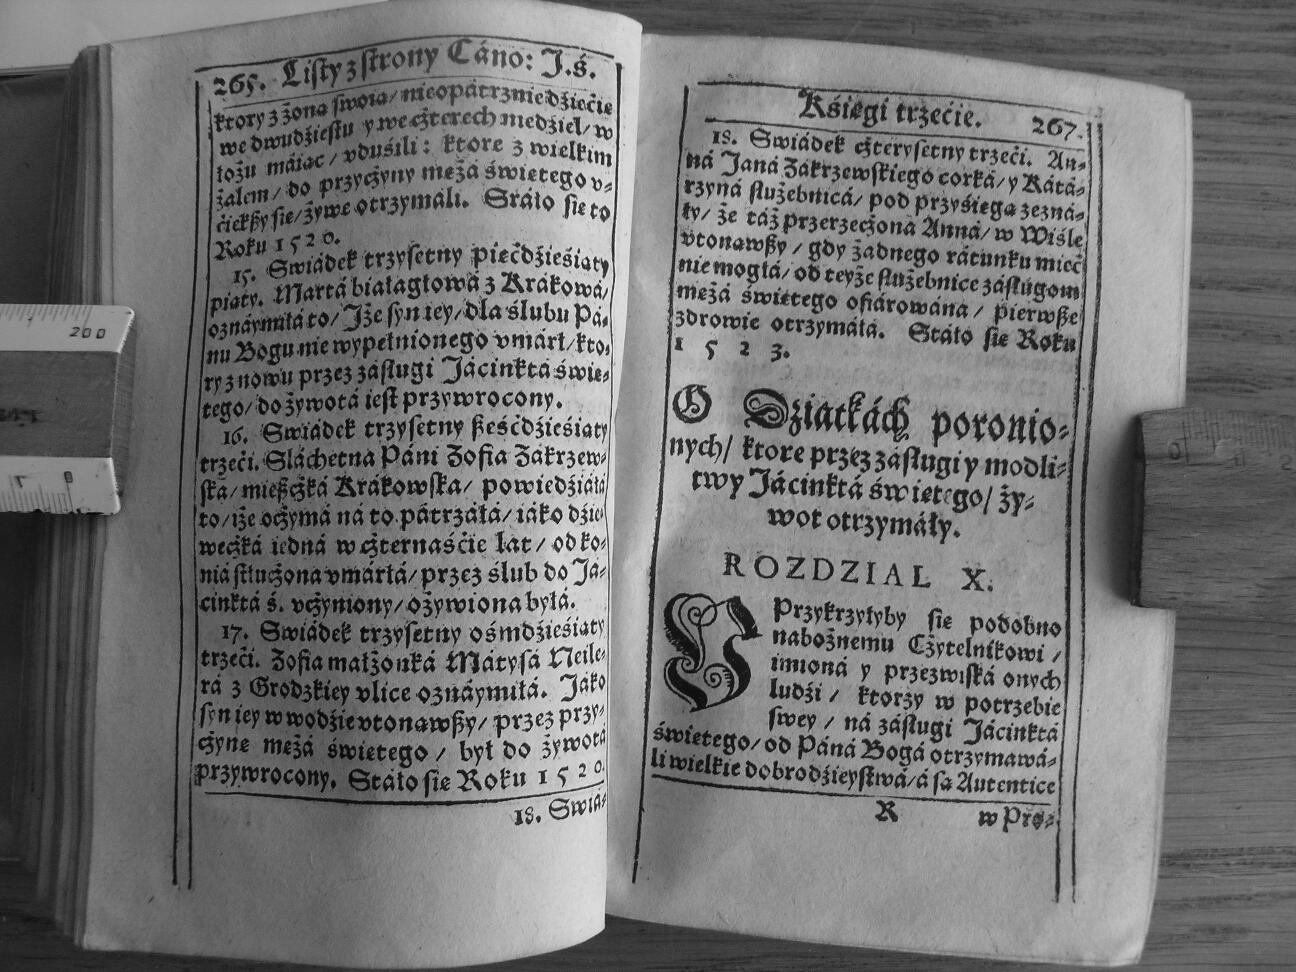 265. Listy z strony Cáno: J. ś.
ktory z żoną swoią/ nieopátrznie dźiećię
we dwudźiestu y we cżterech niedźiel/ w
łożu máiąc/ vduśili: ktore z wielkim
żalem/ do przycżyny mężá świętego v-
ćiekßy się/ żywe otrzymáli. Stáło się to
Roku 1520.
15. Swiádek trzysetny pięćdźieśiąty
piąty. Mártá białagłowá z Krákowá/
oznáymiłá to/ Iże syn iey/ dla ślubu Pá-
nu Bogu nie wypełnionego vmárł/ kto-
ry z nowu przez zasługi Jácinktá świę-
tego/ do żywotá iest przywrocony.
16. Swiádek trzysetny ßeśćdźieśiąty
trzeći. Sláchetna Páni Zofia Zakrzew-
ska/ mießcżká Krákowska/ powiedźiáłá
to/ iże ocżymá ná to pátrzáłá/ iáko dźie-
wecżká iedná w cżternaśćie lat/ od ko-
niá stłucżona vmárłá/ przez ślub do Já-
cinktá ś. vcżyniony/ ożywiona byłá.
17. Swiádek trzysetny ośmdźieśiąty
trzeći. Zofia małżonká Mátysá Neile-
rá z Grodzkiey vlice oznáymiłá. Jáko
syn iey w wodźie vtonąwßy/ przez przy-
cżynę mężá świętego/ był do żywotá
przywrocony. Stáło się Roku 1520.
18. Swiá-
Kśięgi trzećie. 267.
18. Swiádek cżterysetny trzeći. An-
ná Janá Zakrzewskiego corká/ y Kátá-
rzyná służebnicá/ pod przyśięgą zezná-
ły/ że táż przerzecżona Anná/ w Wiśle
vtonąwßy/ gdy żadnego rátunku mieć
nie mogłá/ od teyże służebnice zasługom
mężá świętego ofiárowána/ pierwße
zdrowie otrzymáłá. Stáło się Roku
1523.
O Dźiatkách poronio-
nych/ ktore przez zasługi y modli-
twy Jácinktá świętego/ ży-
wot otrzymáły.
ROZDZIAL X.
Przykrzyłyby się podobno
nabożnemu Cżytelnikowi/
imioná y przezwiská onych
ludźi/ ktorzy w potrzebie
swey/ ná zasługi Jácinktá
świętego/ od Páná Bogá otrzymawá-
li wielkie dobrodźieystwá/ á są Autentice
R w Pro-